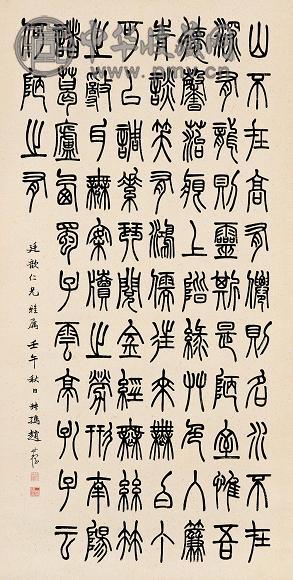 山不在高有僊則名水不在
深有龍則靈斯是陋室惟吾
德馨苔痕上階綠草色入簾
青談笑有鴻儒往來無白丁
可以調素琴閱金經無絲竹
之亂耳無案牘之勞形南陽
諸葛廬西蜀子雲亭孔子云
何陋之有
廷歆仁兄雅屬 壬午秋日 叔孺趙時棡